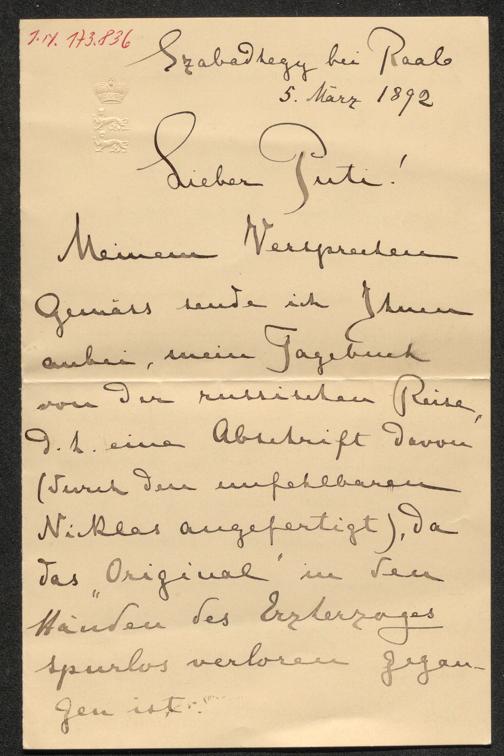 I.N. 173.836
Szabadhegy bei Raab
5. März 1892
Lieber Puti!
Meinem Versprechen
Gemäss sende ich Ihnen
anbei, mein Tagebuch
von der russischen Reise,
d. h. eine Abschrift davon
(durch den unfehlbaren
Nicklas angefertigt), da
das „Original" in den
Händen des Erzherzoges
spurlos verloren gegan-
gen ist.